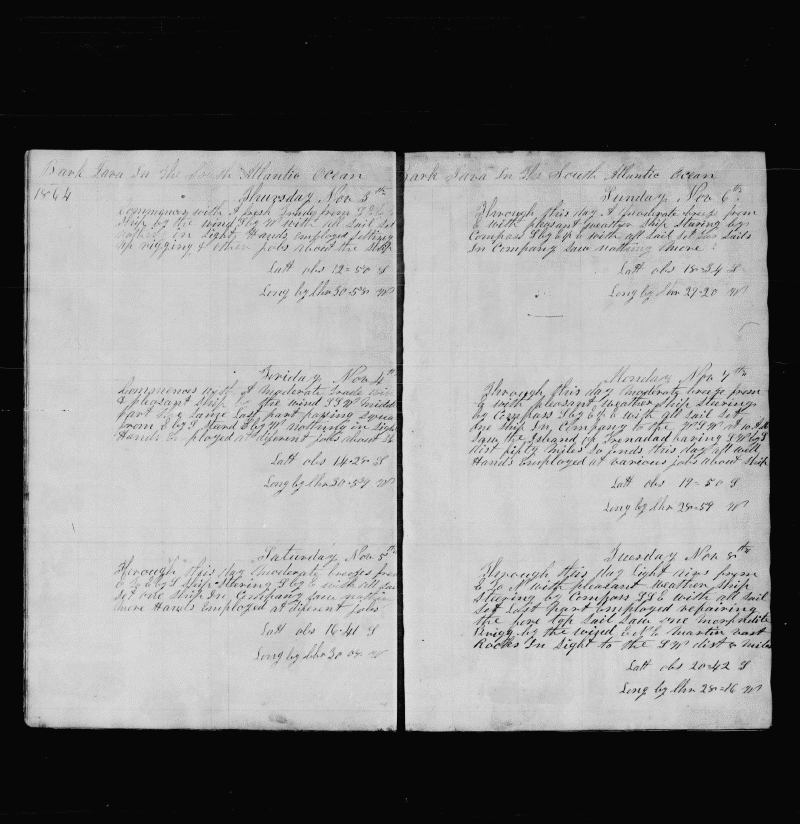 Bark Java In The South Atlantic Ocean
1864
Thursday Nov 3th
Commences with A fresh trade from
Ship by the wind S by W with all Sail Set
nothing in Sight Hands employed setting
up rigging & other jobs about the Ship
Latt obs 12=50 S
Long by Chr 30-58 W
Friday Nov 4th
Commences with A moderate trade
& pleasant Ship by the wind SSW middle
part the Same Last part passing
from E by S Stand S by W nothing in Sight
Hands employed at diferent jobs about
Latt obs 14-28 S
Long by Chr 30-59 W
Saturday Nov 5th
Through this day moderate breezes from
E to E by S Ship Stering S by E with all Sail
Set one Ship In Company Saw nothing
more Hands Employed at diferent jobs
Latt obs 16-41 S
Long by Chr 30 08 W
Bark Java In The South Atlantic Ocean
Sunday Nov 6th
Through this day A moderate breeze from
E with pleasant weather Ship Stering by
Compass S by E & E with all Sail Set two Sails
In Company Saw nothing more
Latt obs 18-34 S
Long by Chr 29-20 W
Monday Nov 7th
Through this day moderate breeze from
E with pleasant weather Ship Stering
by Compass S by E & E with all Sail Set
one Ship In Company to the
Saw the Island of Trenadad baring SW by S
dist fifty miles So ends this day all well
Hands Employed at various jobs about Ship
Latt obs 19=50 S
Long by Chr 28-59 W
Tuesday Nov 8th
Through this day light airs from
E to N with pleasant weather Ship
Steering by Compass SSE with all Sail
Set Last part employed repairing
the fore top Sail Saw one morphedite
Brigg by the wind Martin vast
Rocks In Sight to the SW dist 8 miles
Latt obs 20=42 S
Long by Chr 28=16 W